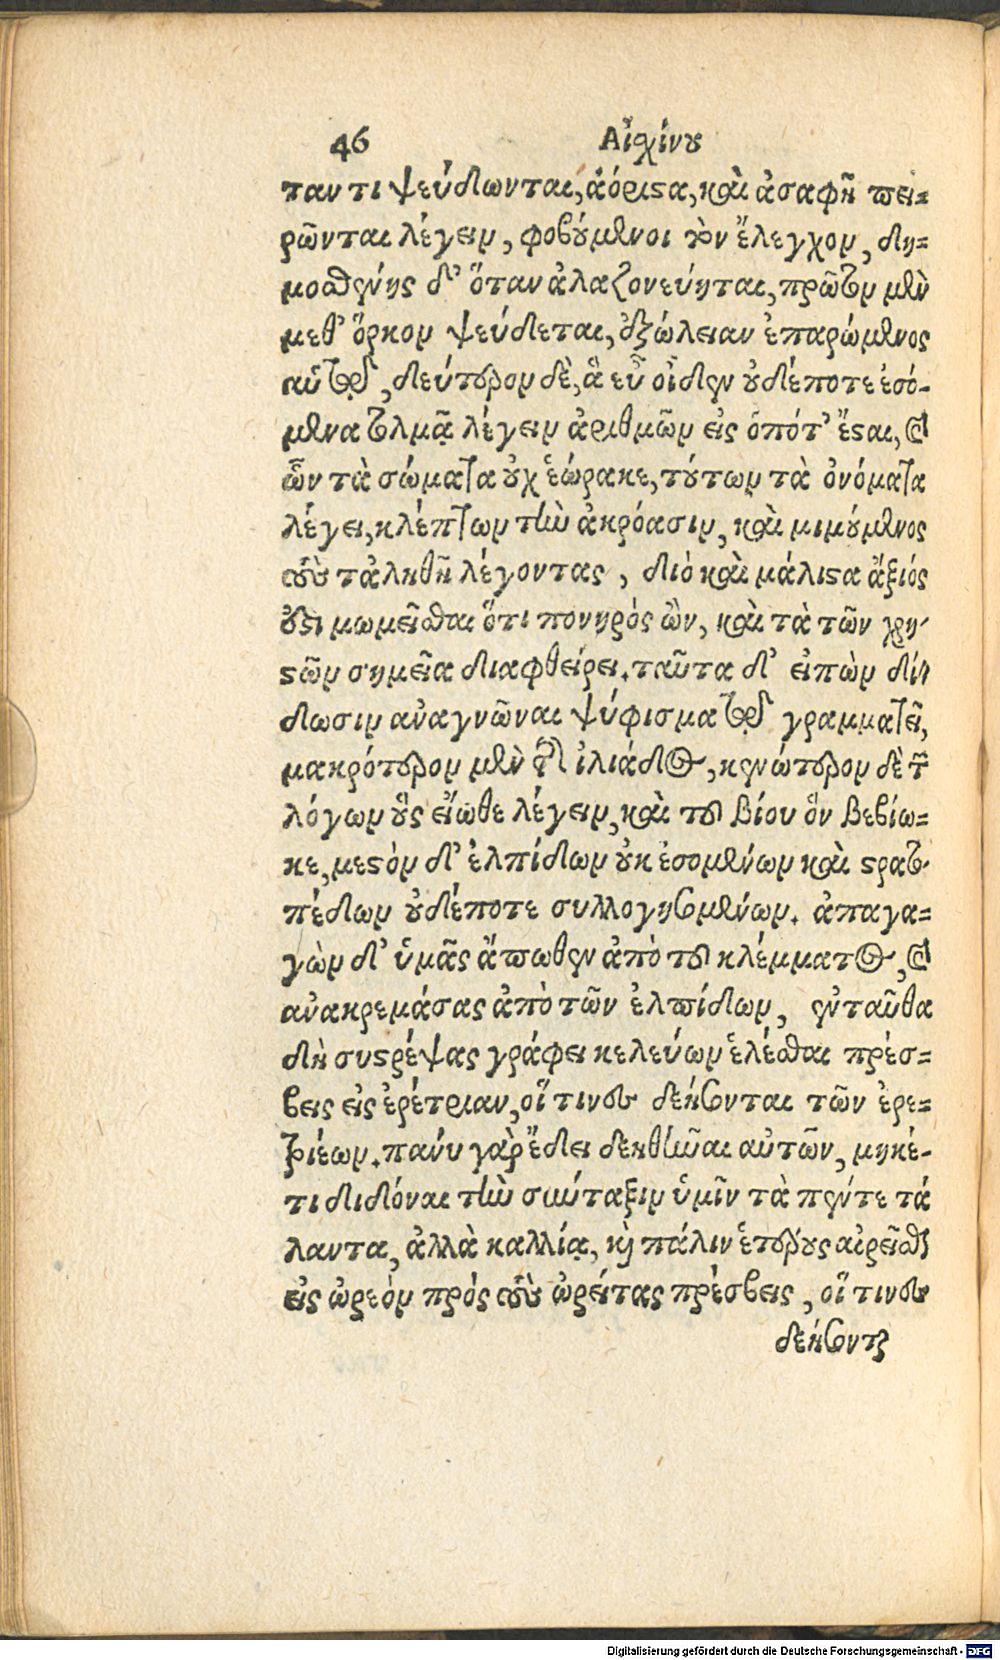 46 Αἰσχίνου
ταν τι ψεύδωνται, ἀόριστα, καὶ ἀσαφῆ πει-
ρῶνται λέγειν, φοβούμενοι τὸν ἔλεγχον, δη-
μοσθένης δ' ὅταν ἀλαζονεύηται, πρῶτον μὲν
μεθ' ὅρκου ψεύδεται, ἐξώλειαν ἐπαρώμενος
αὑτῷ, δεύτερον δὲ, ἃ εὖ οἶδεν οὐδέποτε ἐσό-
μενα τολμᾷ λέγειν ἀριθμῶν εἰς ὁπότ' ἔσται, καὶ
ὧν τὰ σώματα οὐχ ἑώρακε, τούτων τὰ ὀνόματα
λέγει, κλέπτων τὴν ἀκρόασιν, καὶ μιμούμενος
τοὺς τἀληθῆ λέγοντας, διὸ καὶ μάλιστα ἄξιός
ἐστι μωμεῖσθαι ὅτι πονηρός ὢν, καὶ τὰ τῶν χρη-
στῶν σημεῖα διαφθείρει. ταῦτα δ' εἰπὼν δί-
δωσιν ἀναγνῶναι ψήφισμα τῷ γραμματεῖ,
μακρότερον μὲν τῆς ἰλιάδος, κενώτερον δὲ τῶν
λόγων οὓς εἴωθε λέγειν, καὶ τοῦ βίου ὃν βεβίω-
κε, μεστὸν δ' ἐλπίδων οὐκ ἐσομένων καὶ στρατο-
πέδων οὐδέποτε συλλογησομένων. ἀπαγα-
γὼν δ' ὑμᾶς ἄπωθεν ἀπὸ τοῦ κλέμματος, καὶ
ἀνακρεμάσας ἀπὸ τῶν ἐλπίδων, ἐνταῦθα
δὴ συστρέψας γράφει κελεύων ἑλέσθαι πρέσ-
βεις εἰς ἐρέτριαν, οἵ τινες δεήσονται τῶν ἐρε-
τριέων. πάνυ γὰρ ἔδει δεηθῆναι αὐτῶν, μηκέ-
τι διδόναι τὴν σύνταξιν ὑμῖν τὰ πέντε τά
λαντα, ἀλλὰ καλλίᾳ, καὶ πάλιν ἑτέρους αἱρεῖσθαι
εἰς ὠρεὸν πρὸς τοὺς ὠρείτας πρέσβεις, οἵ τινες
δεήσονται
Digitalisierung gefördert durch die Deutsche Forschungsgemeinschaft - DFG